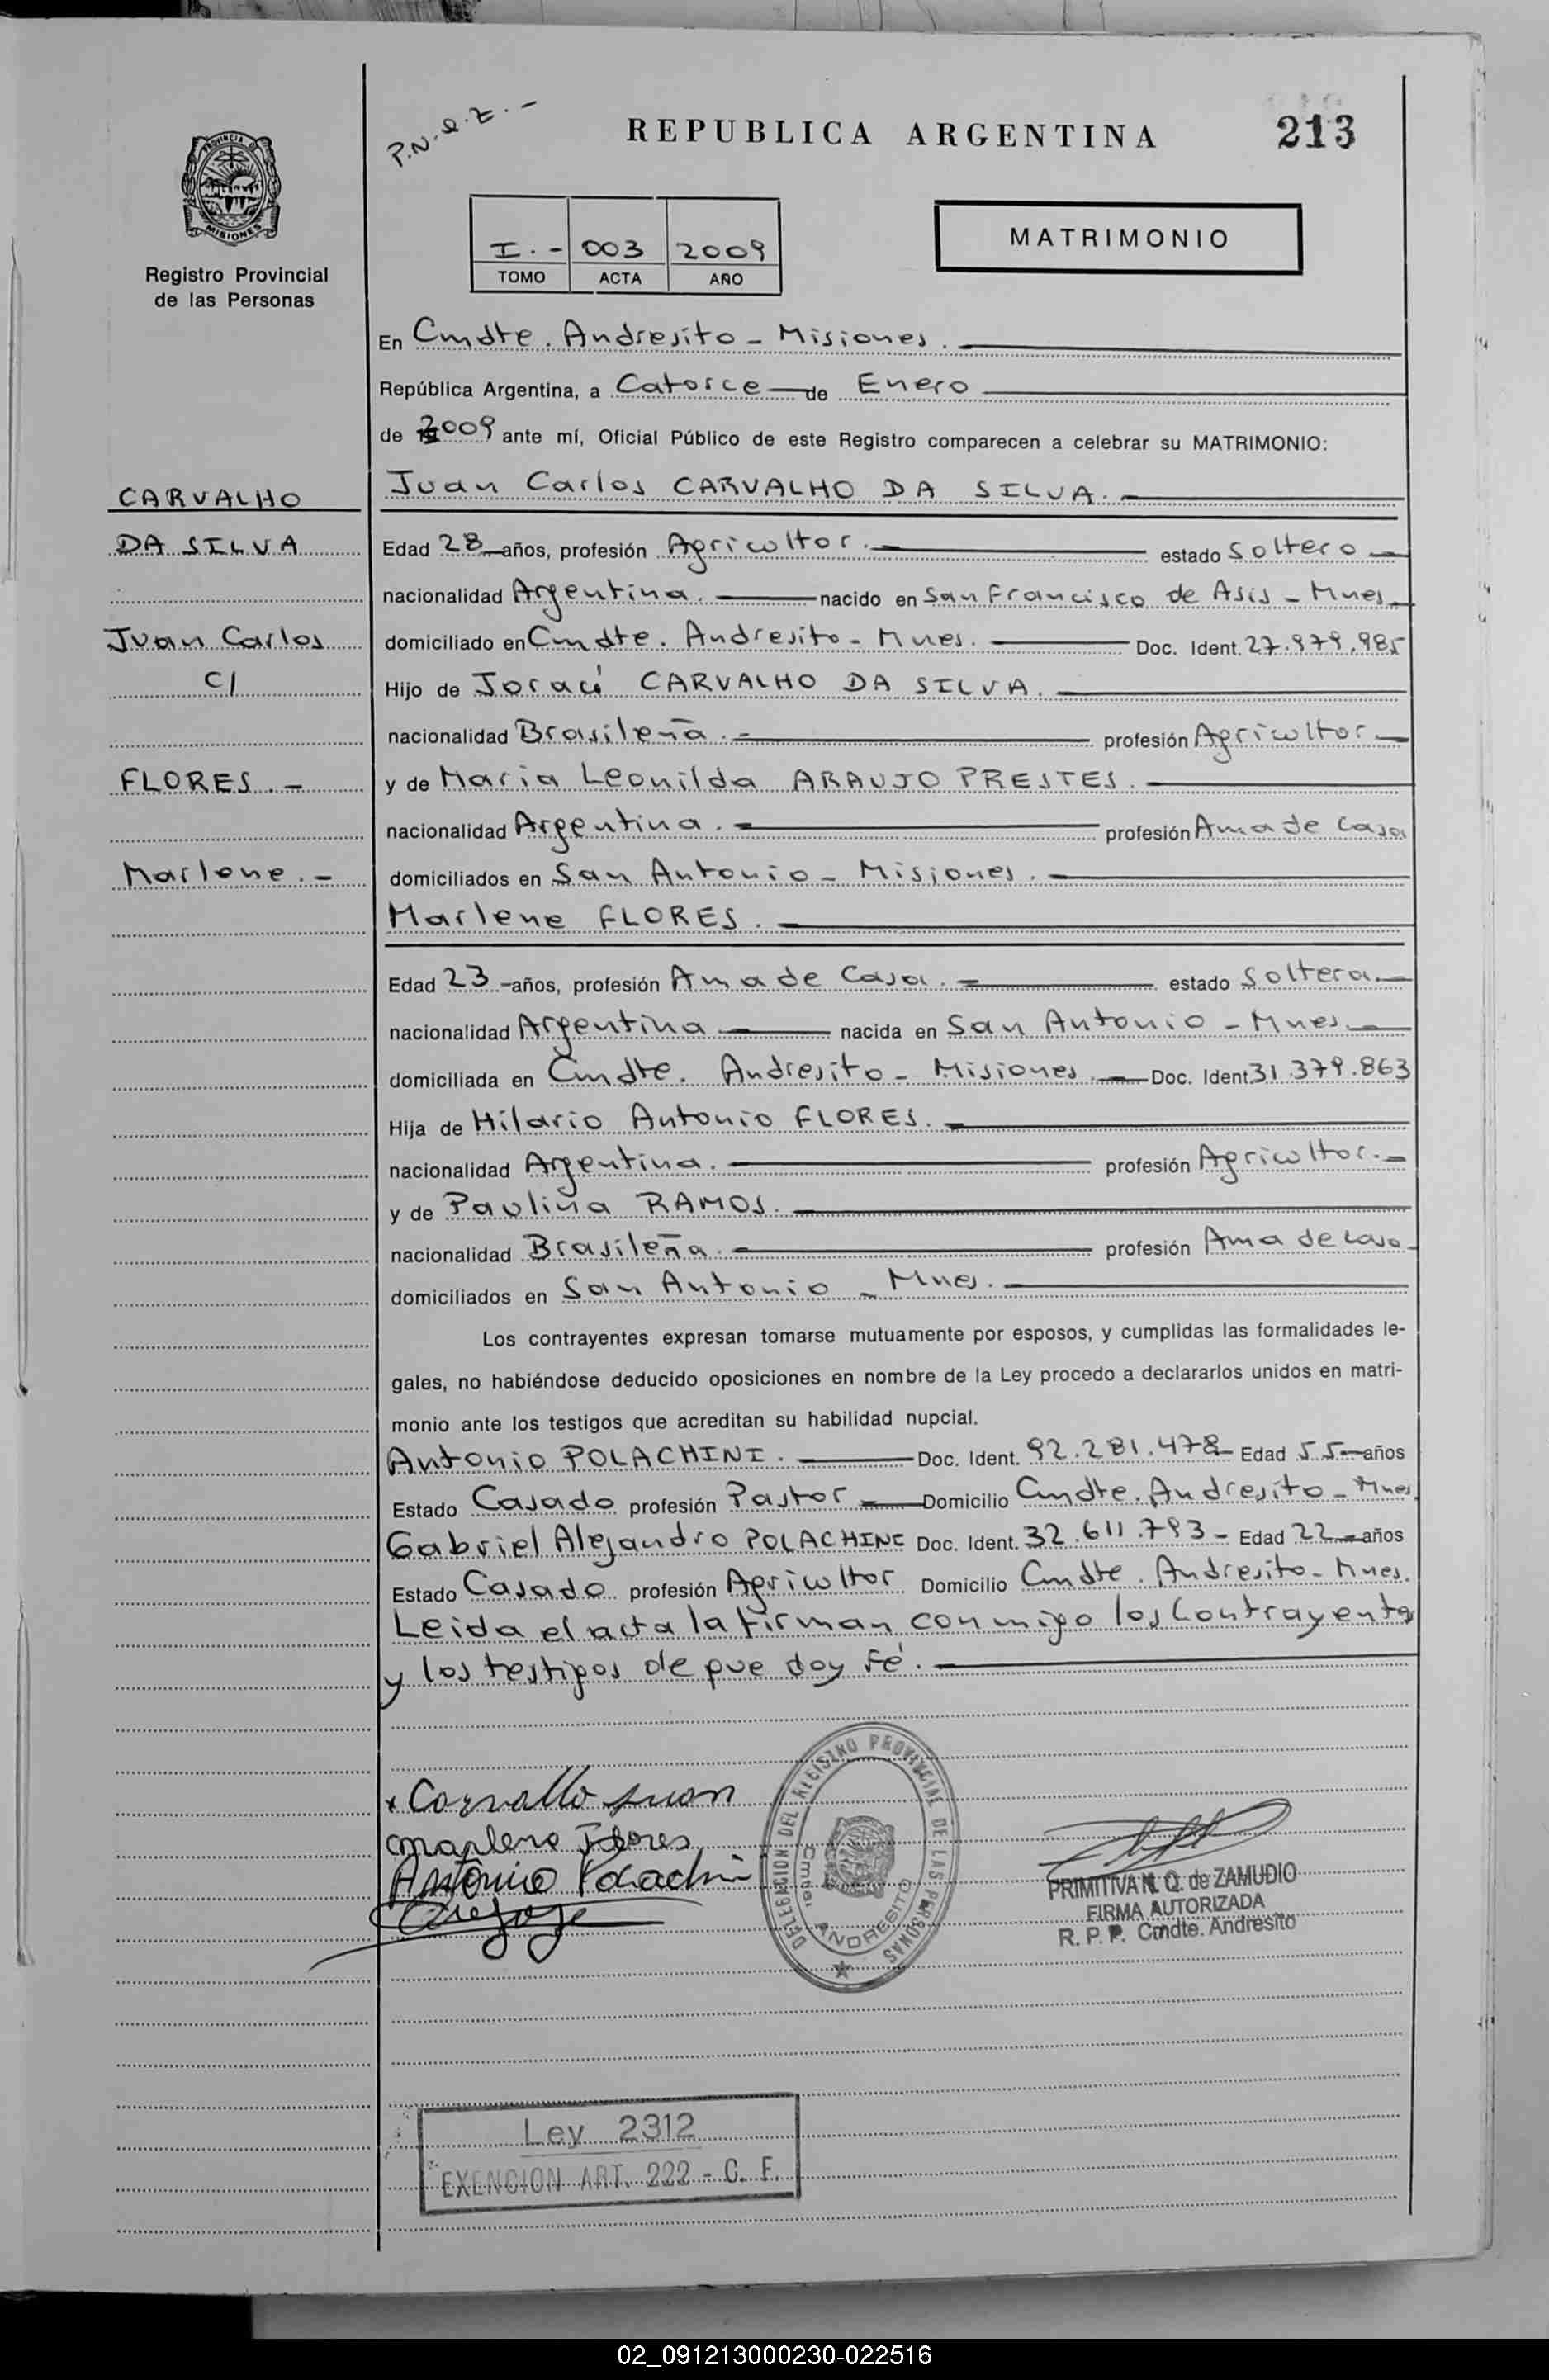 P.N.Q.Z.-
REPUBLICA ARGENTINA
213
PROVINCIA DE
MISIONES
Registro Provincial
de las Personas
I.- 003 2009
TOMO ACTA AÑO
MATRIMONIO
En Cmdte. Andresito - Misiones.
República Argentina, a Catorce de Enero
de 2009 ante mí, Oficial Público de este Registro comparecen a celebrar su MATRIMONIO:
CARVALHO
DA SILVA
Juan Carlos
C/
FLORES.-
Marlene.-
Juan Carlos CARVALHO DA SILVA.
Edad 28 años, profesión Agricultor. estado Soltero
nacionalidad Argentina. nacido en San Francisco de Asis - Mnes
domiciliado en Cmdte. Andresito - Mnes. Doc. Ident. 27.979.985
Hijo de Joraci CARVALHO DA SILVA.
nacionalidad Brasileña.- profesión Agricultor
y de Maria Leonilda ARAUJO PRESTES.
nacionalidad Argentina. profesión Ama de Casa
domiciliados en San Antonio - Misiones.
Marlene FLORES.
Edad 23 -años, profesión Ama de Casa. estado Soltera.
nacionalidad Argentina nacida en San Antonio - Mnes.
domiciliada en Cmdte. Andresito - Misiones. Doc. Ident 31.379.863
Hija de Hilario Antonio FLORES.
nacionalidad Argentina. profesión Agricultor.-
y de Paulina RAMOS.
nacionalidad Brasileña. profesión Ama de Casa
domiciliados en San Antonio - Mnes.
Los contrayentes expresan tomarse mutuamente por esposos, y cumplidas las formalidades le-
gales, no habiéndose deducido oposiciones en nombre de la Ley procedo a declararlos unidos en matri-
monio ante los testigos que acreditan su habilidad nupcial.
Antonio POLACHINI. Doc. Ident. 92.281.478 Edad 55 años
Estado Casado profesión Pastor Domicilio Cmdte. Andresito - Mnes.
Gabriel Alejandro POLACHINI Doc. Ident. 32.611.793 - Edad 22 años
Estado Casado profesión Agricultor Domicilio Cmdte. Andresito - Mnes.
Leida el acta la firman conmigo los Contrayentes
y los testigos de que doy fé.
x Carvallo Juan
Marlene Flores
Antonio Polachini
DELEGACION DEL REGISTRO PROVINCIAL DE LAS PERSONAS
Cmte. ANDRESITO
PRIMITIVA N. Q. de ZAMUDIO
FIRMA AUTORIZADA
R. P. P. Cmdte. Andresito
Ley 2312
EXENCION ART. 222 - C. F.
02_091213000230-022516